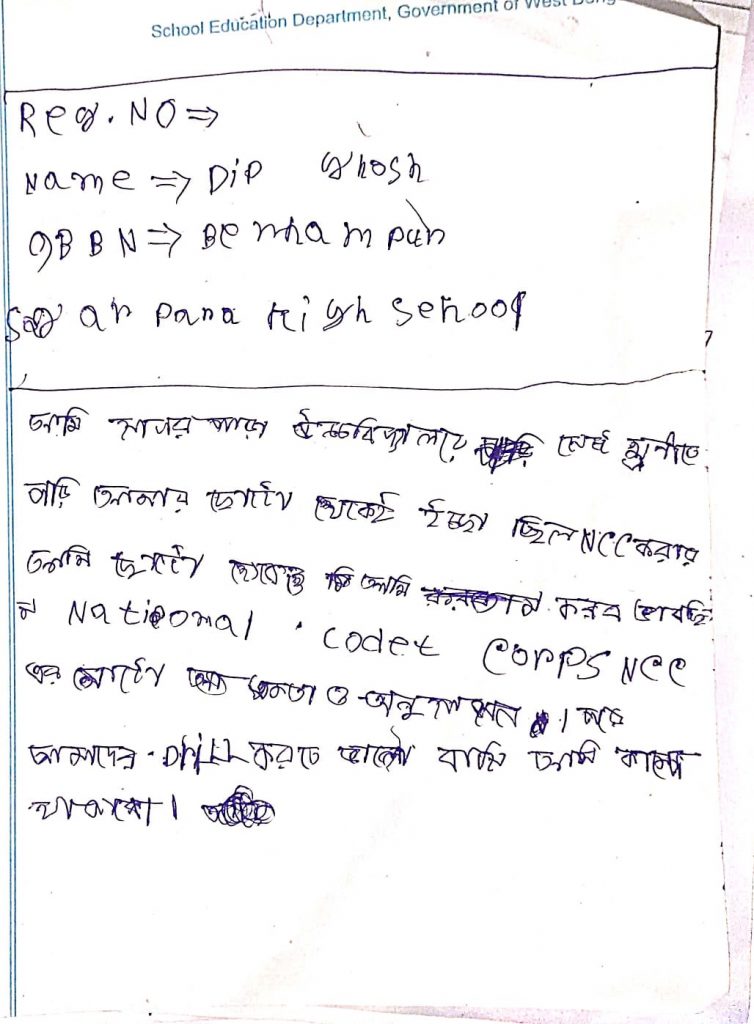 School Education Department, Government of West Beng
Reg. NO ⇒
Name ⇒ DiP Ghosh
9B BN ⇒ Berhampur
Sagar Para High School
আমি সাগর পাড়া উচ্চবিদ্যালয়ে শ্রেণীতে
পড়ি আমার ছোটো থেকেই ইচ্ছা ছিল NCC করার
আমি ছোটো থেকেই আমি করব ভেবেছি
National codet CORPS NCC
এর একতা ও অনুশাসন । 
আমাদের Drill করতে আমি
থাকবো ।